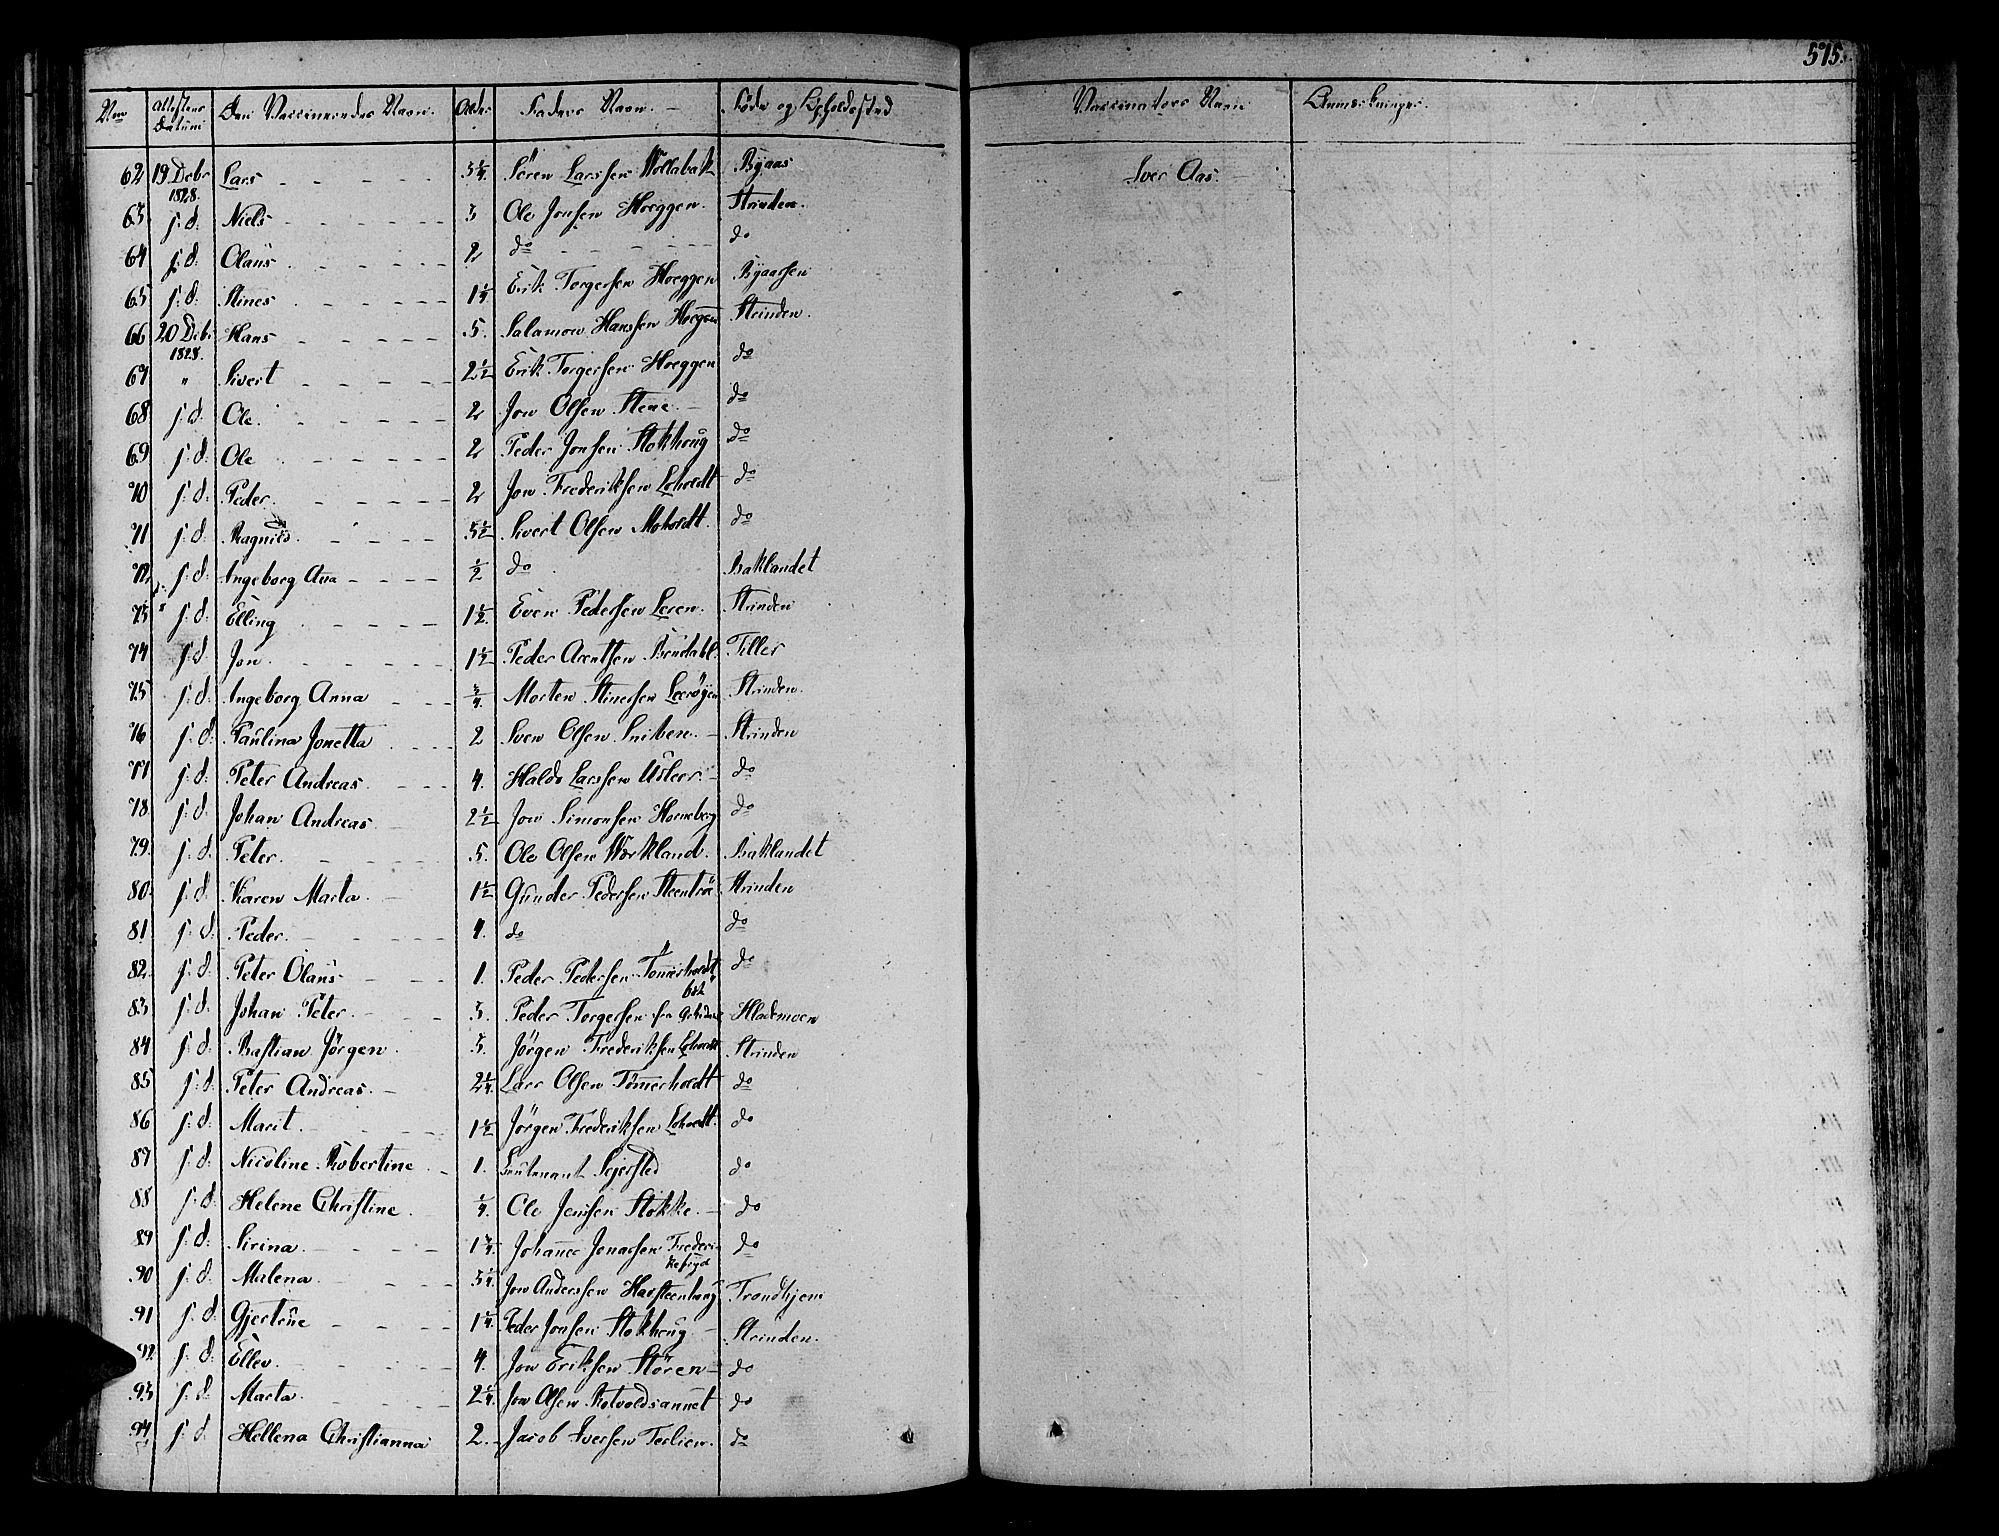 575.
No Attestens Datum Den Vaccinerendes Navn. Alder Faders Navn. Føde og Opholdssted Vaccinatørs Navn Anmærkninger.
62 19 Debr 1828. Lars 3 1/4 Sören Larssen Byaas Iver Aas.
63. s: d: Niels 3 Ole Jonsen Hoeggen. Strinden.
64 s: d: Olaus 2 do do
65 s: d: Stines 1 1/4 Erik Torgersen Hoeggen Byaassen
66 20 Debr 1828. Hans 5. Salamon Hanssen Hoeggen Strinden.
67 " Sivert 2 1/2 Erik Torgersen Hoeggen do
68 s: d: Ole. 2 Jon Olsen Stene. do
69 s: d: Ole 2 Peder Jonsen Stokhoug do
70 s: d: Peder. 2 Jon Frederiksen Loholdt do
71 s: d: Ragnild. 5 1/2 Sivert Olsen Moholdt. do
72 s: d: Ingeborg Ana 1/2 do Baklandet
73 s: d: Elling 1 1/2 Even Pedersen Leren. Strinden
74 s: d: Jon. 1 1/2 Peder Arentsen Tiller
75 s: d: Ingeborg Anna 3/4 Morten Stinersen Strinden.
76 s: d: Paulina Jonetta 2 Sven Olsen Strinden
77 s: d: Peter Andreas. 4. Haldo Larssen do
78. s: d: Johan Andreas 2 1/2 Jon Simonsen Horneberg do
79. s: d: Peter. 5. Ole Olsen Baklandet
80. s: d: Karen Marta 1 1/2 Gunder Pedersen Strinden
81 s: d: Peder. 4. do do
82. s: d: Peter Olaus 1. Peder Pedersen Tömmerholdt do
83 s: d: Johan Peter. 3 Peder Torgersen fra Hlademoen
84 s: d: Bastian Jörgen. 3. Jörgen Frederiksen Loholdt Strinden
85 s: d: Peter Andreas. 2 1/4 Lars Olsen Tömmerholdt do
86 s: d: Marit. 1 1/2 Jörgen Frederiksen Loholdt. do
87 s: d: Nicoline Robertine 1. Leutenant Sejersted do
88 s: d: Helene Christine. 1/4. Ole Jenssen Stokke. do
89 s: d: Sirina. 1 3/4. Johannes Jonassen do
90 s: d: Malena. 3 1/4. Jon Anderssen Trondhjem
91 s: d: Gjertine 1 1/4. Peder Jonsen Stokhoug Strinden.
92. s: d: Ellev. 4. Jon Eriksen Stören do
93 s: d: Marta. 2 1/4. Jon Olsen Rotvoldsaunet do
94 s: d: Hellena Christianna 2. Jacob Iversen Teslien. do